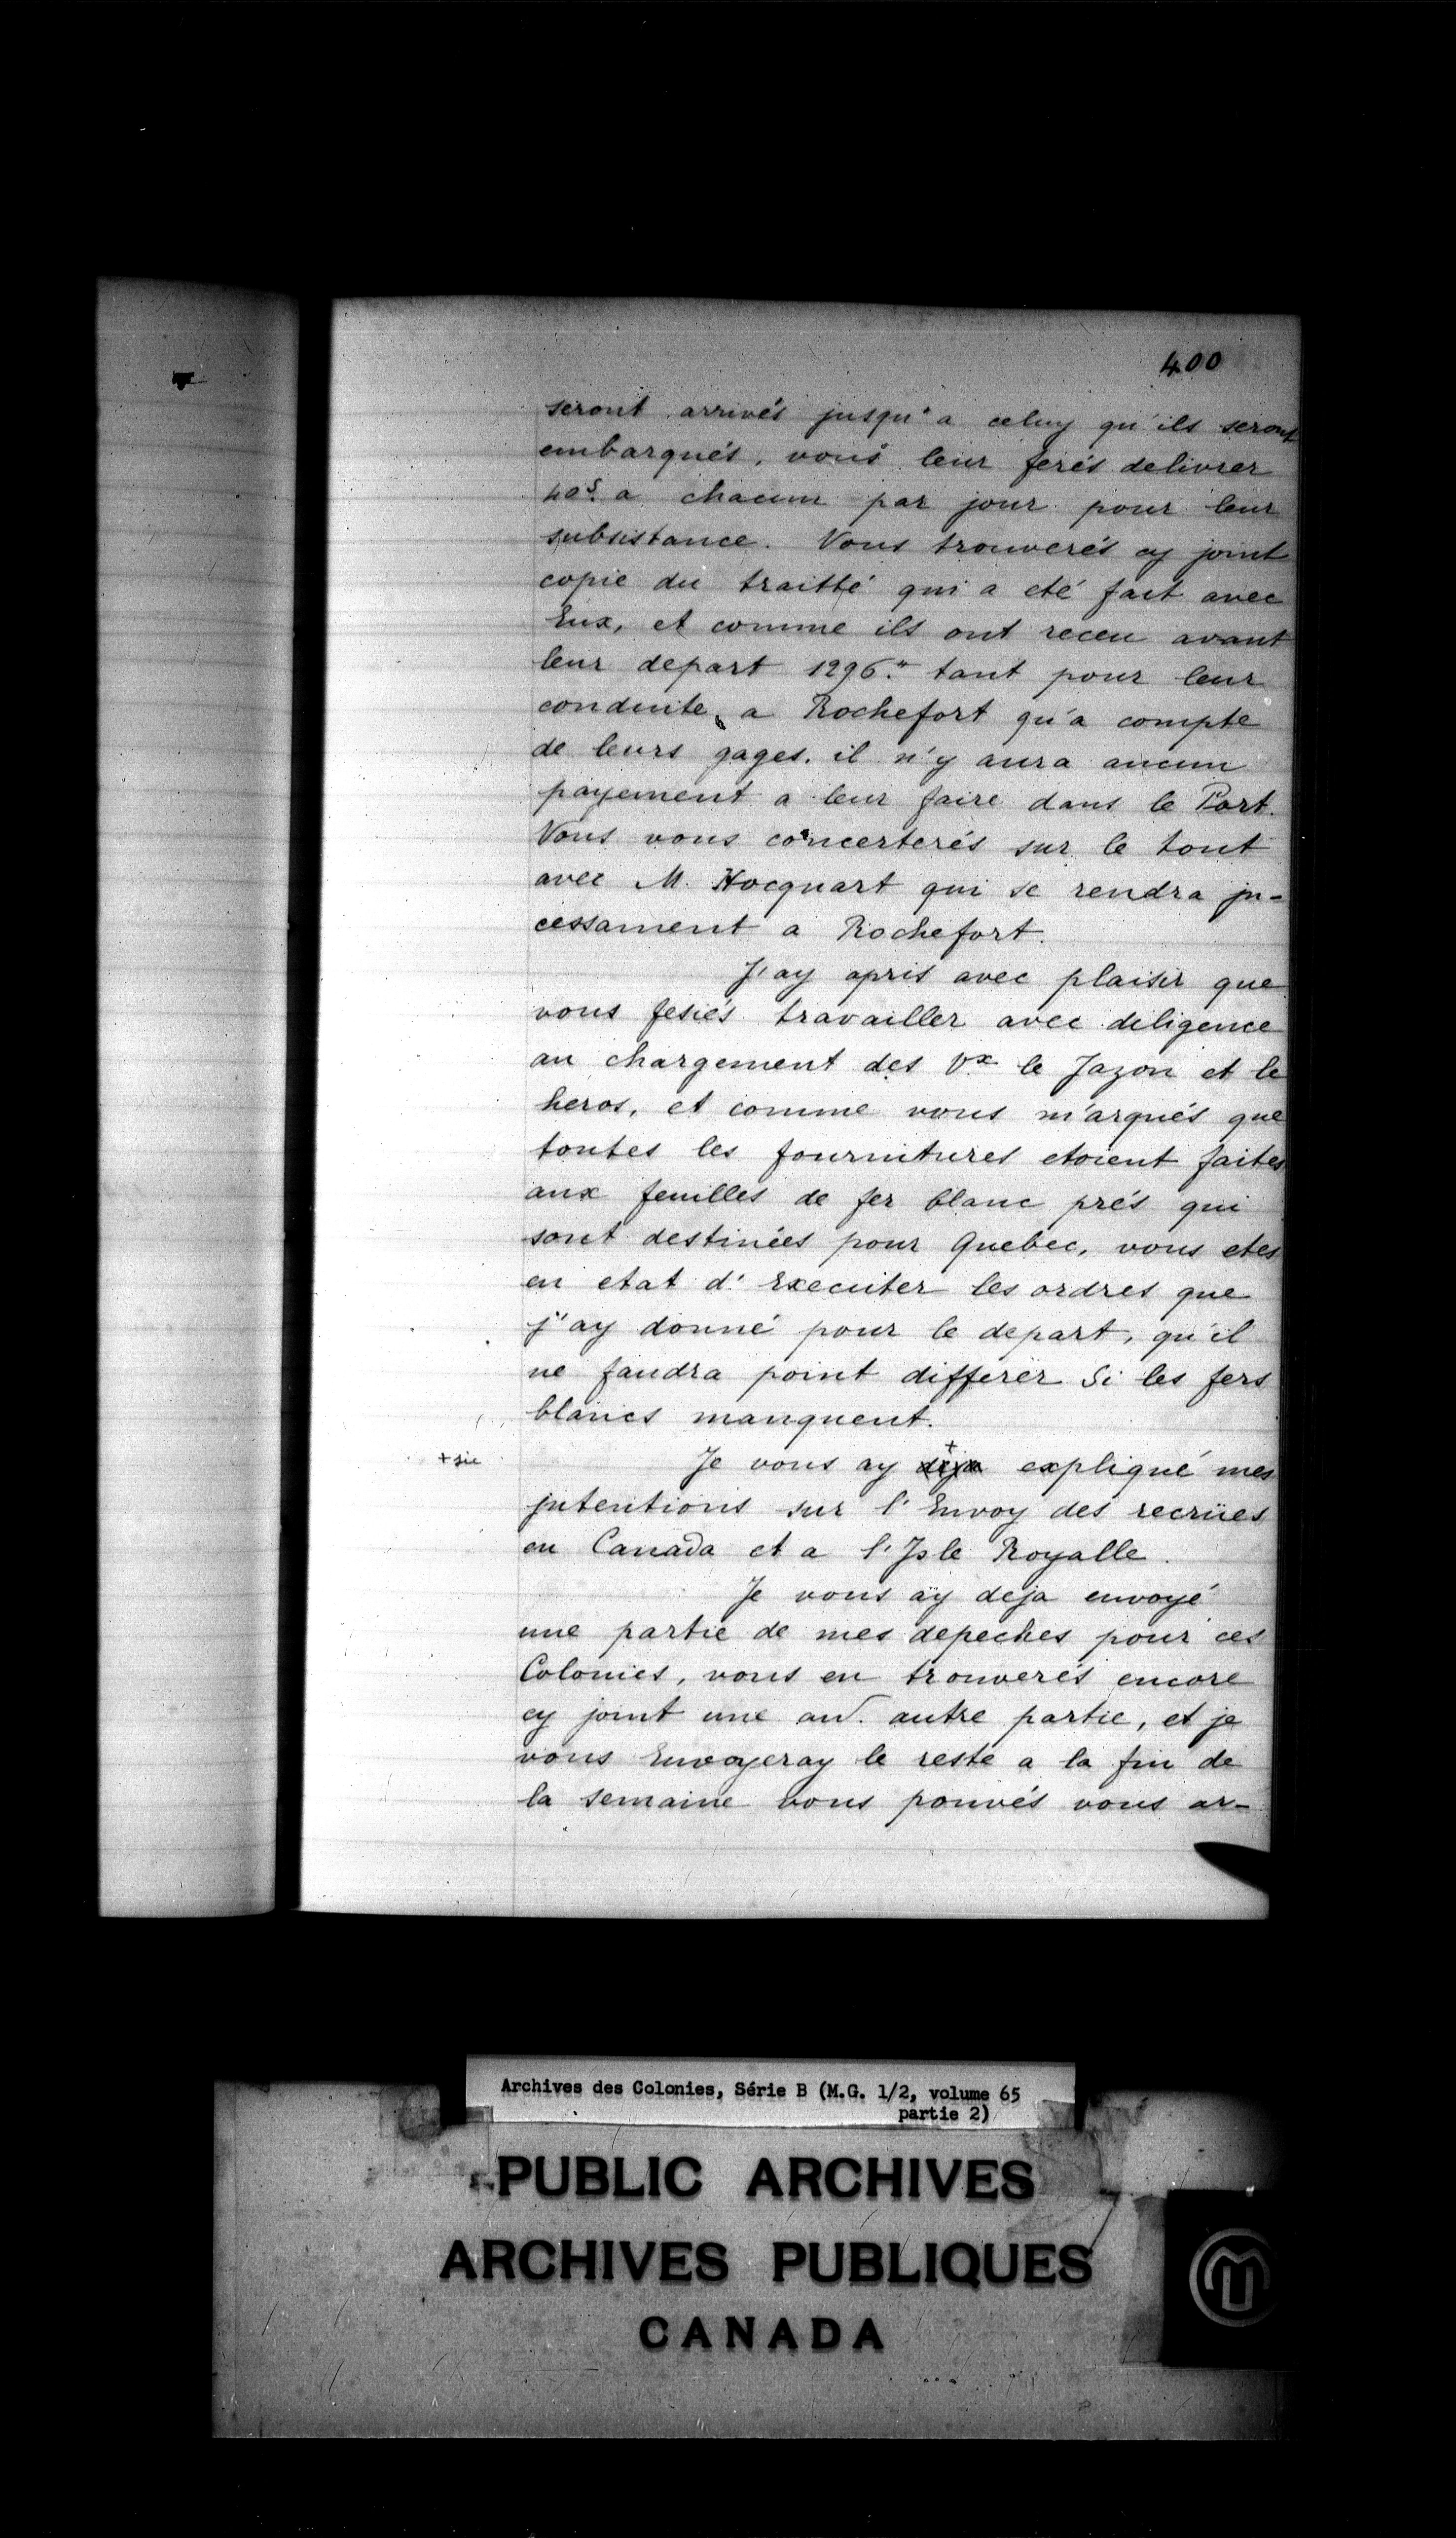 400
seront arrivés jusqu'a celuy qu'ils seront
embarqués, vous leur ferés delivrer
40s. a chacun par jour pour leur
subsistance. Vous trouverés cy joint
copie du traitté qui a eté fait avec
Eux, et comme ils ont receu avant
leur depart 1296.# tant pour leur
conduite a Rochefort qu'a compte
de leurs gages. il n'y aura aucun
payement a leur faire dans le Port.
Vous vous concerterés sur le tout
avec M. Hocquart qui se rendra jn-
cessament a Rochefort.
J'ay apris avec plaisir que
vous fesiés travailler avec diligence
au chargement des Vx le Jazon et le
heros, et comme vous m'arqués que
toutes les fournitures etoient faites
aux feuilles de fer blanc prés qui
sont destinées pour Quebec, vous etes
en etat d'Executer les ordres que
j'ay donné pour le depart, qu'il
ne faudra point differer Si les fers
blancs manquent.
+ sic
Je vous ay deja + expliqué mes
jntentions sur l'Envoy des recrües
en Canada et a l'Jsle Royalle.
Je vous aÿ deja envoyé
une partie de mes depeches pour ces
Colonies, vous en trouverés encore
cy joint une autre partie, et je
vous Envoyeray le reste a la fin de
la semaine vous pouvés vous ar-
Archives des Colonies, Série B (M.G. 1/2, volume 65
partie 2)
PUBLIC ARCHIVES
ARCHIVES PUBLIQUES
CANADA